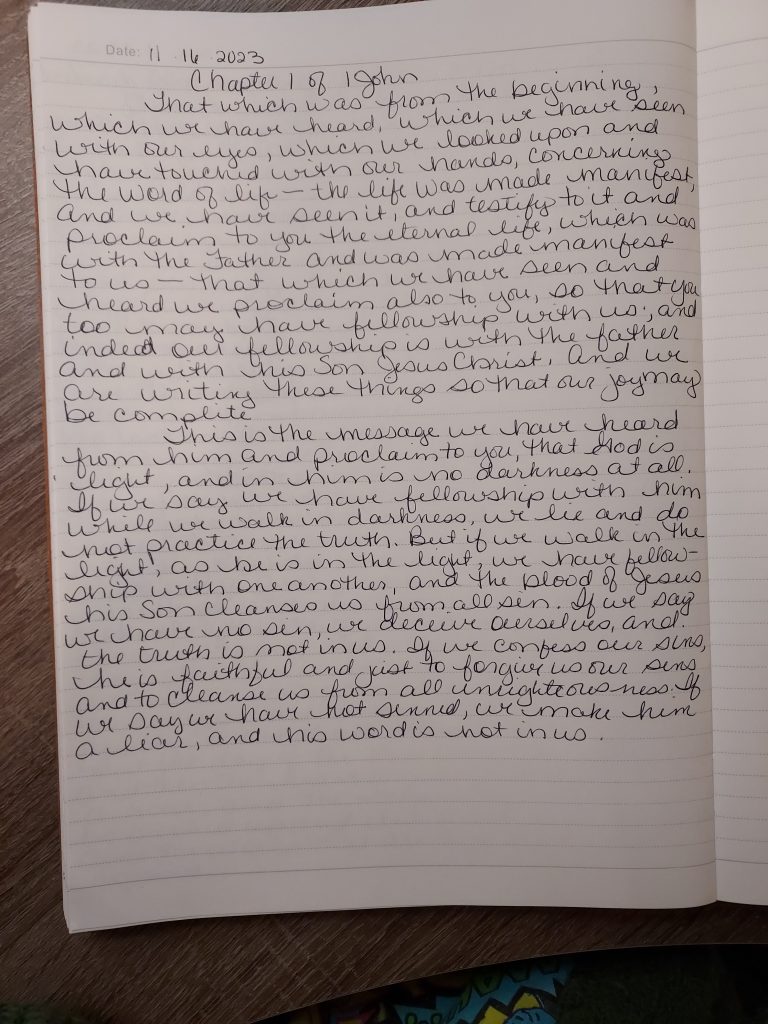 Date: 11 16 2023
Chapter 1 of 1 John
That which was from the beginning,
which we have heard, which we have seen
with our eyes, which we looked upon and
have touched with our hands, concerning
the word of life — the life was made manifest,
and we have seen it, and testify to it and
proclaim to you the eternal life, which was
with the Father and was made manifest
to us — that which we have seen and
heard we proclaim also to you, so that you
too may have fellowship with us; and
indeed our fellowship is with the father
and with his Son Jesus Christ. And we
are writing these things so that our joy may
be complete
This is the message we have heard
from him and proclaim to you, that God is
light, and in him is no darkness at all.
If we say we have fellowship with him
while we walk in darkness, we lie and do
not practice the truth. But if we walk in the
light, as he is in the light, we have fellow-
ship with one another, and the blood of Jesus
his Son cleanses us from all sin. If we say
we have no sin, we deceive ourselves, and
the truth is not in us. If we confess our sins,
he is faithful and just to forgive us our sins
and to cleanse us from all unrighteousness. If
we say we have not sinned, we make him
a liar, and his word is not in us.